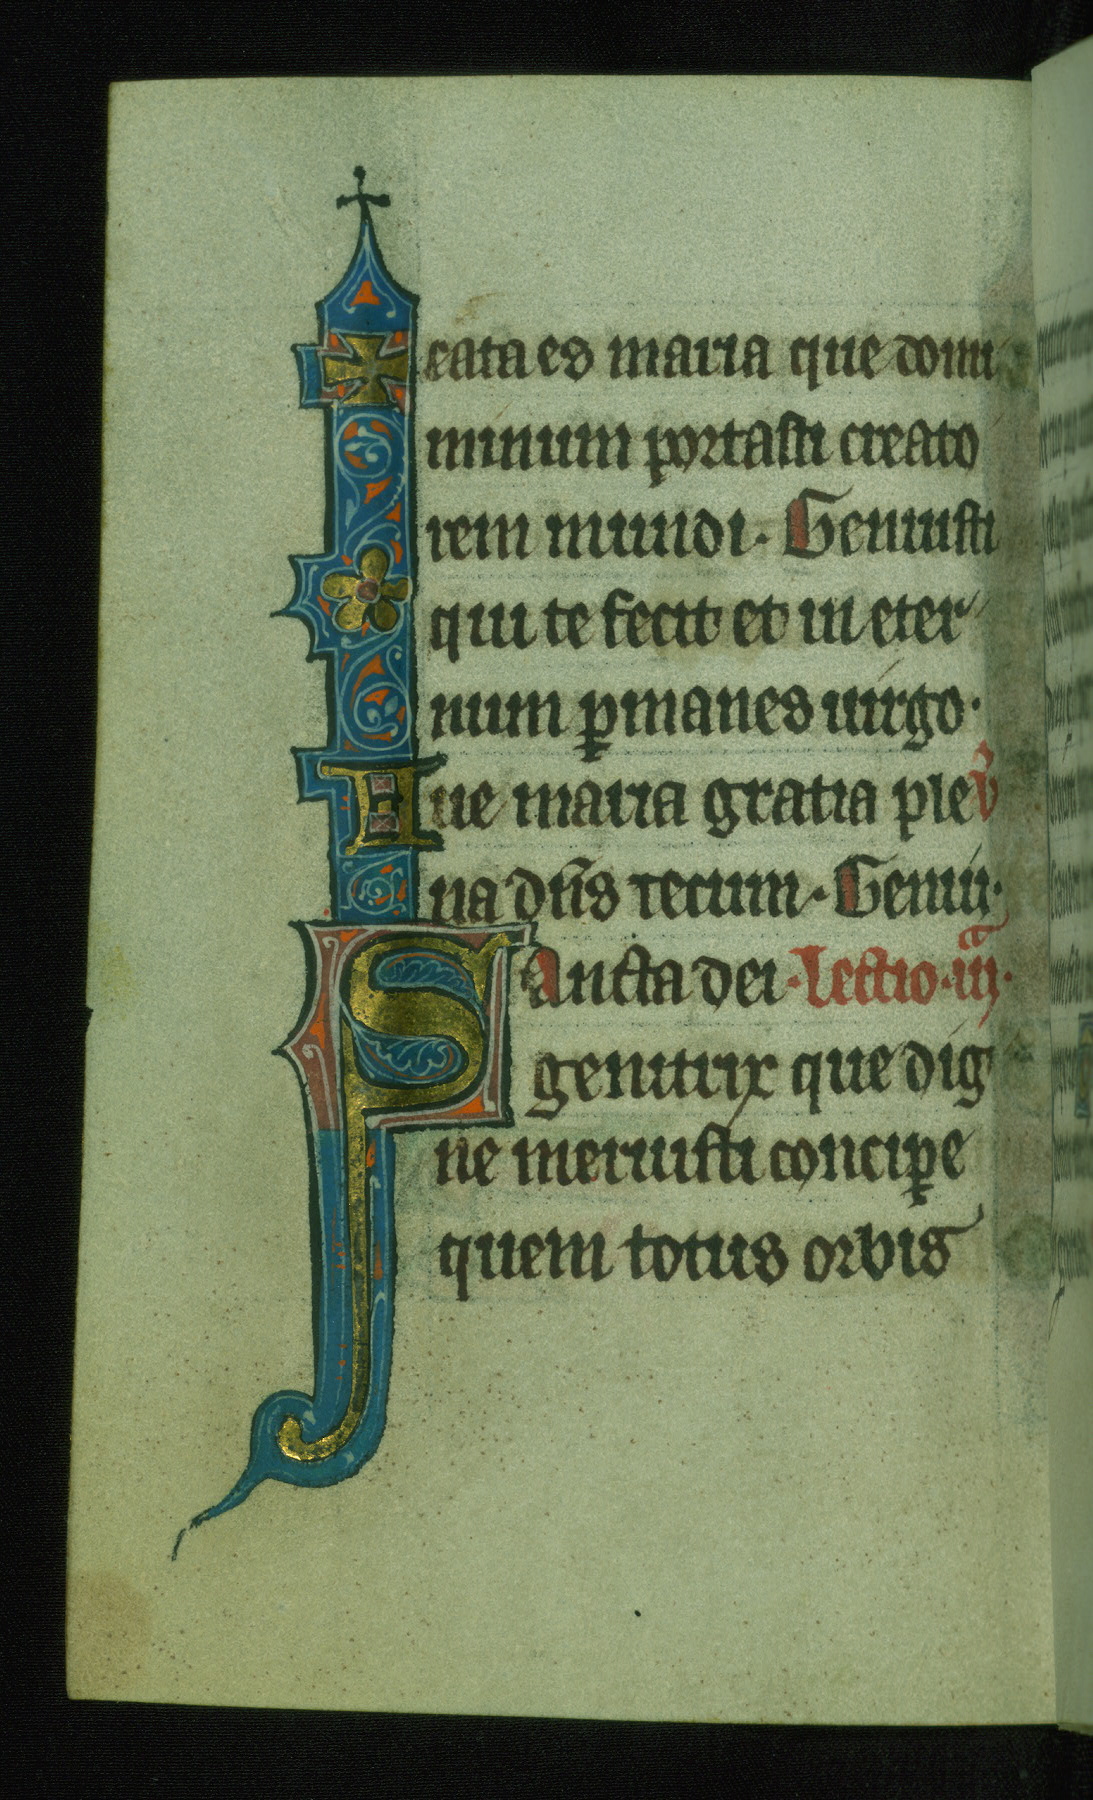 eata es maria que domi
minum portasti creato
rem mundi. Genuisti
qui te fecit et in eter
num pmanes uirgo.
Aue maria gratia ple v̄
na dn̄s tecum. Genuii.
Sancta dei. Lectio .iiia.
genitrix que dig
ne meruisti concipe
quem totus orbis